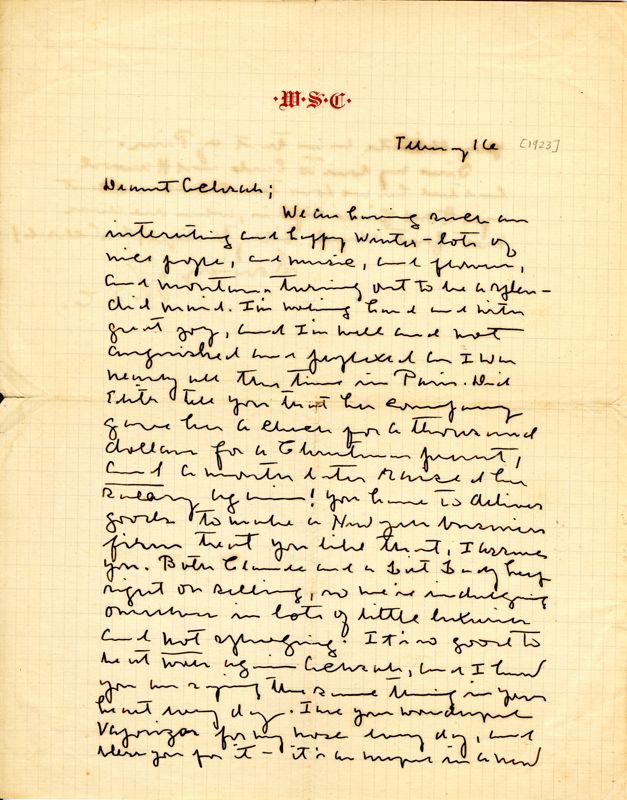 ·W·S·C·
February 16 [1923]
Dearest Achsah;
We are having such an
interesting and happy Winter - lots of
nice people, and music, and flowers,
and turning out to be a splen-
did maid. I'm working hard and with
great joy, and I'm well and not
anguished and perplexed as I was
nearly all the time in Paris. Did
Edith tell you that her company
gave her a check for a thousand
dollars for a Christmas present,
and a month later raised her
salary again! You have to deliver
goods to make a New York business
firm treat you like that, I assure
you. Both Claude and a Lost Lady keep
right on selling, so we're indulging
ourselves in lots of little luxuries
and not splurging. It is so good to
be at work again Achsah, and I know
you are saying the same thing in your
heart every day. I use your wonderful
Vaporizer for my nose every day, and
bless you for it - it's an in a